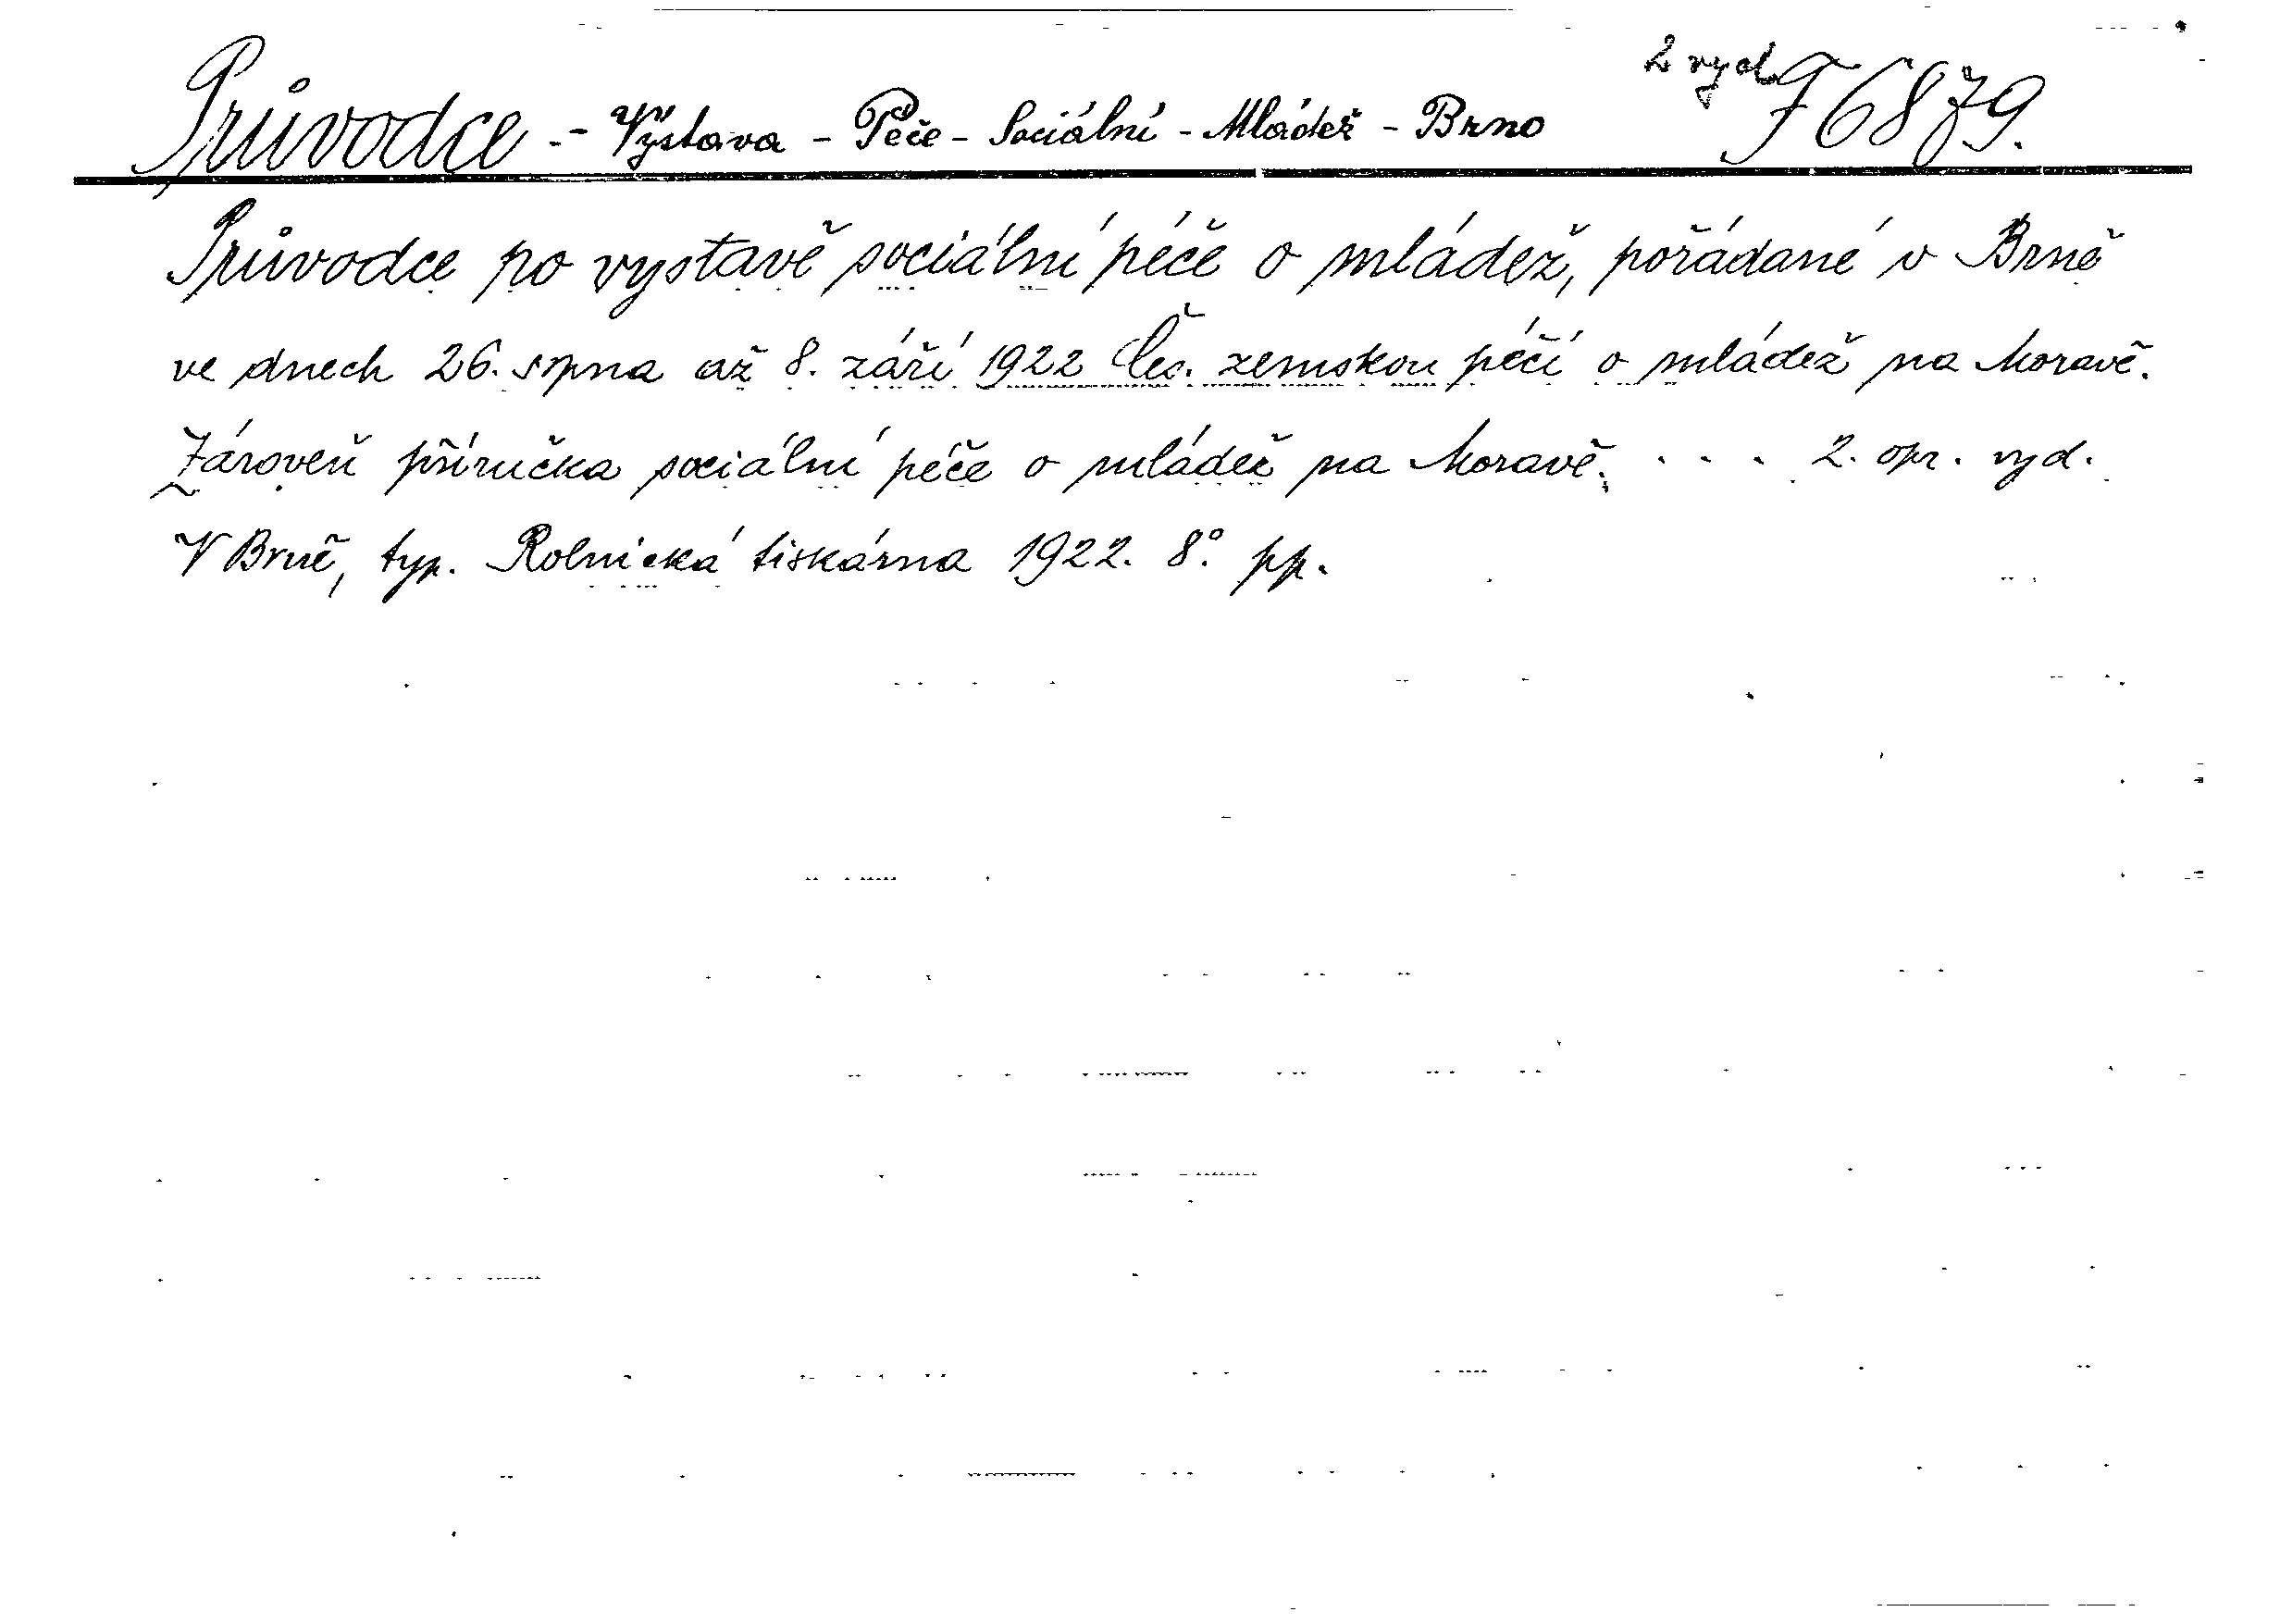 Průvodce - Výstava - Péče - Sociální - Mládež - Brno 2 vyd. F6879.
Průvodce po vystavě sociální péče o mládež, pořádané v Brně
ve dnech 26. srpna až 8. září 1922 Čes. zemskou péčí o mládež na Moravě.
Zároveň příručka sociální péče o mládež na Moravě. . . . 2. opr. vyd.
V Brně, typ. Rolnická tiskárna 1922. 8° pp.